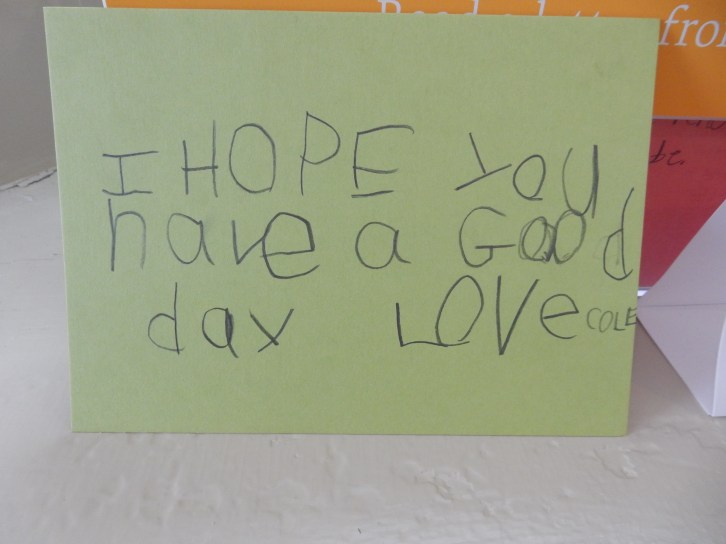 from
be.
I HOPE You
have a Good
day LOVe COLE